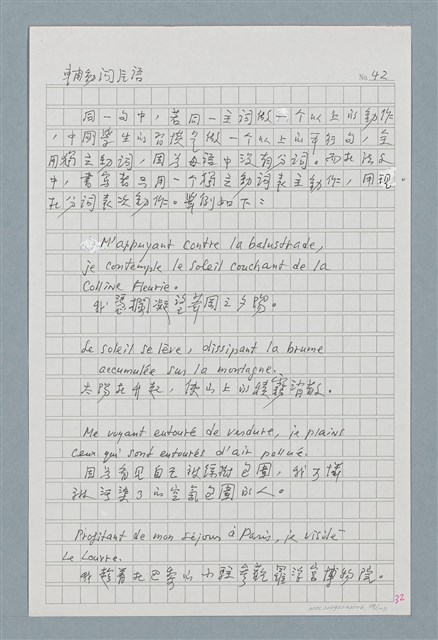 輔動詞片語
No. 42
同一句中，若同一主詞做一个以上的動作
，中國學生的習慣是做一个以上的平行句，全
用獨立動詞，因為母語中沒有分詞。而在法文
中，書寫者只用一个獨立動詞表主動作，用現
在分詞表次動作。舉例如下：
M'appuyant contre la balustrade,
je contemple le soleil couchant de la
Colline Fleurie.
我憑欄凝望華岡之夕陽。
Le soleil se lève, dissipant la brume
accumulée sur la montagne.
太陽在升起，使山上的積霧消散。
Me voyant entouré de verdure, je plains
ceux qui sont entourés d'air pollué.
因為看見自己被綠樹包圍，我可憐
被污染了的空氣包圍的人。
Profitant de mon séjour à Paris, je visite
Le Louvre.
我趁着在巴黎的小駐參觀羅浮宮博物院。
32